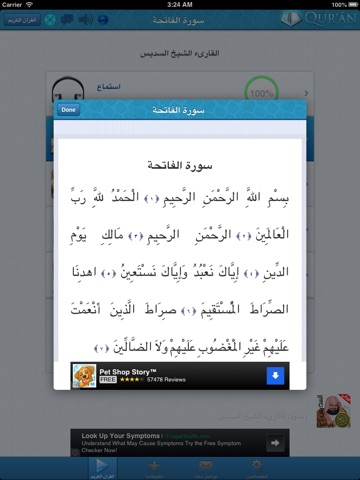 Carrier
3:24 AM
100%
القرآن الكريم
سورة الفاتحة
QUR'ÂN
القارىء الشيخ السديس
استماع
100%
Done
سورة الفاتحة
سورة الفاتحة
بِسْمِ اللَّهِ الرَّحْمَنِ الرَّحِيمِ ﴿١﴾ الْحَمْدُ للَّهِ رَبِّ
الْعَالَمِينَ ﴿٢﴾ الرَّحْمَنِ الرَّحِيمِ ﴿٣﴾ مَالِكِ يَوْمِ
الدِّينِ ﴿٤﴾ إِيَّاكَ نَعْبُدُ وَإِيَّاكَ نَسْتَعِينُ ﴿٥﴾ اهدِنَا
الصِّرَاطَ الْمُسْتَقِيمَ ﴿٦﴾ صِرَاطَ الَّذِينَ أَنْعَمْتَ
عَلَيْهِمْ غَيْرِ الْمَغْضُوبِ عَلَيْهِمْ وَلاَ الضَّالِّينَ ﴿٧﴾
Pet Shop Story™
FREE 57478 Reviews
Look Up Your Symptoms
Understand What May Cause Symptoms Try the Free Symptom
Checker Now!
القرآن الكريم